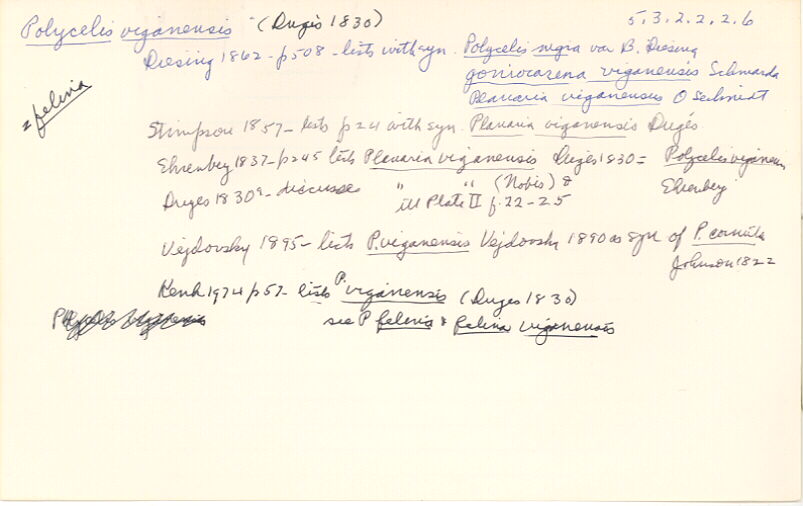 Polycelis viganensis (Dugés 1830) 5.3.2.2.2.6
Diesing 1862 - p508 - lists with syn. Polycelis nigra var B. Diesing
goniocarena viganensis Schmarda
Planaria viganensis O Schmidt
= felina
Stimpson 1857 - lists p24 with syn. Planaria viganensis Dugés
Ehrenbeg 1837 - p245 lists Planaria viganensis Dugés 1830 = Polycelis viganensis
Ehrenbeg
Duges 1830a - discusses " " (Nobis) &
ill Plate II f. 22-25
Vejdovsky 1895 - lists P. viganensis Vejdovsky 1890 as syn of P. cornuta
Johnson 1822
Kenk 1974 p57 - lists P. viganensis (Duges 1830)
see P felina & felina viganensis